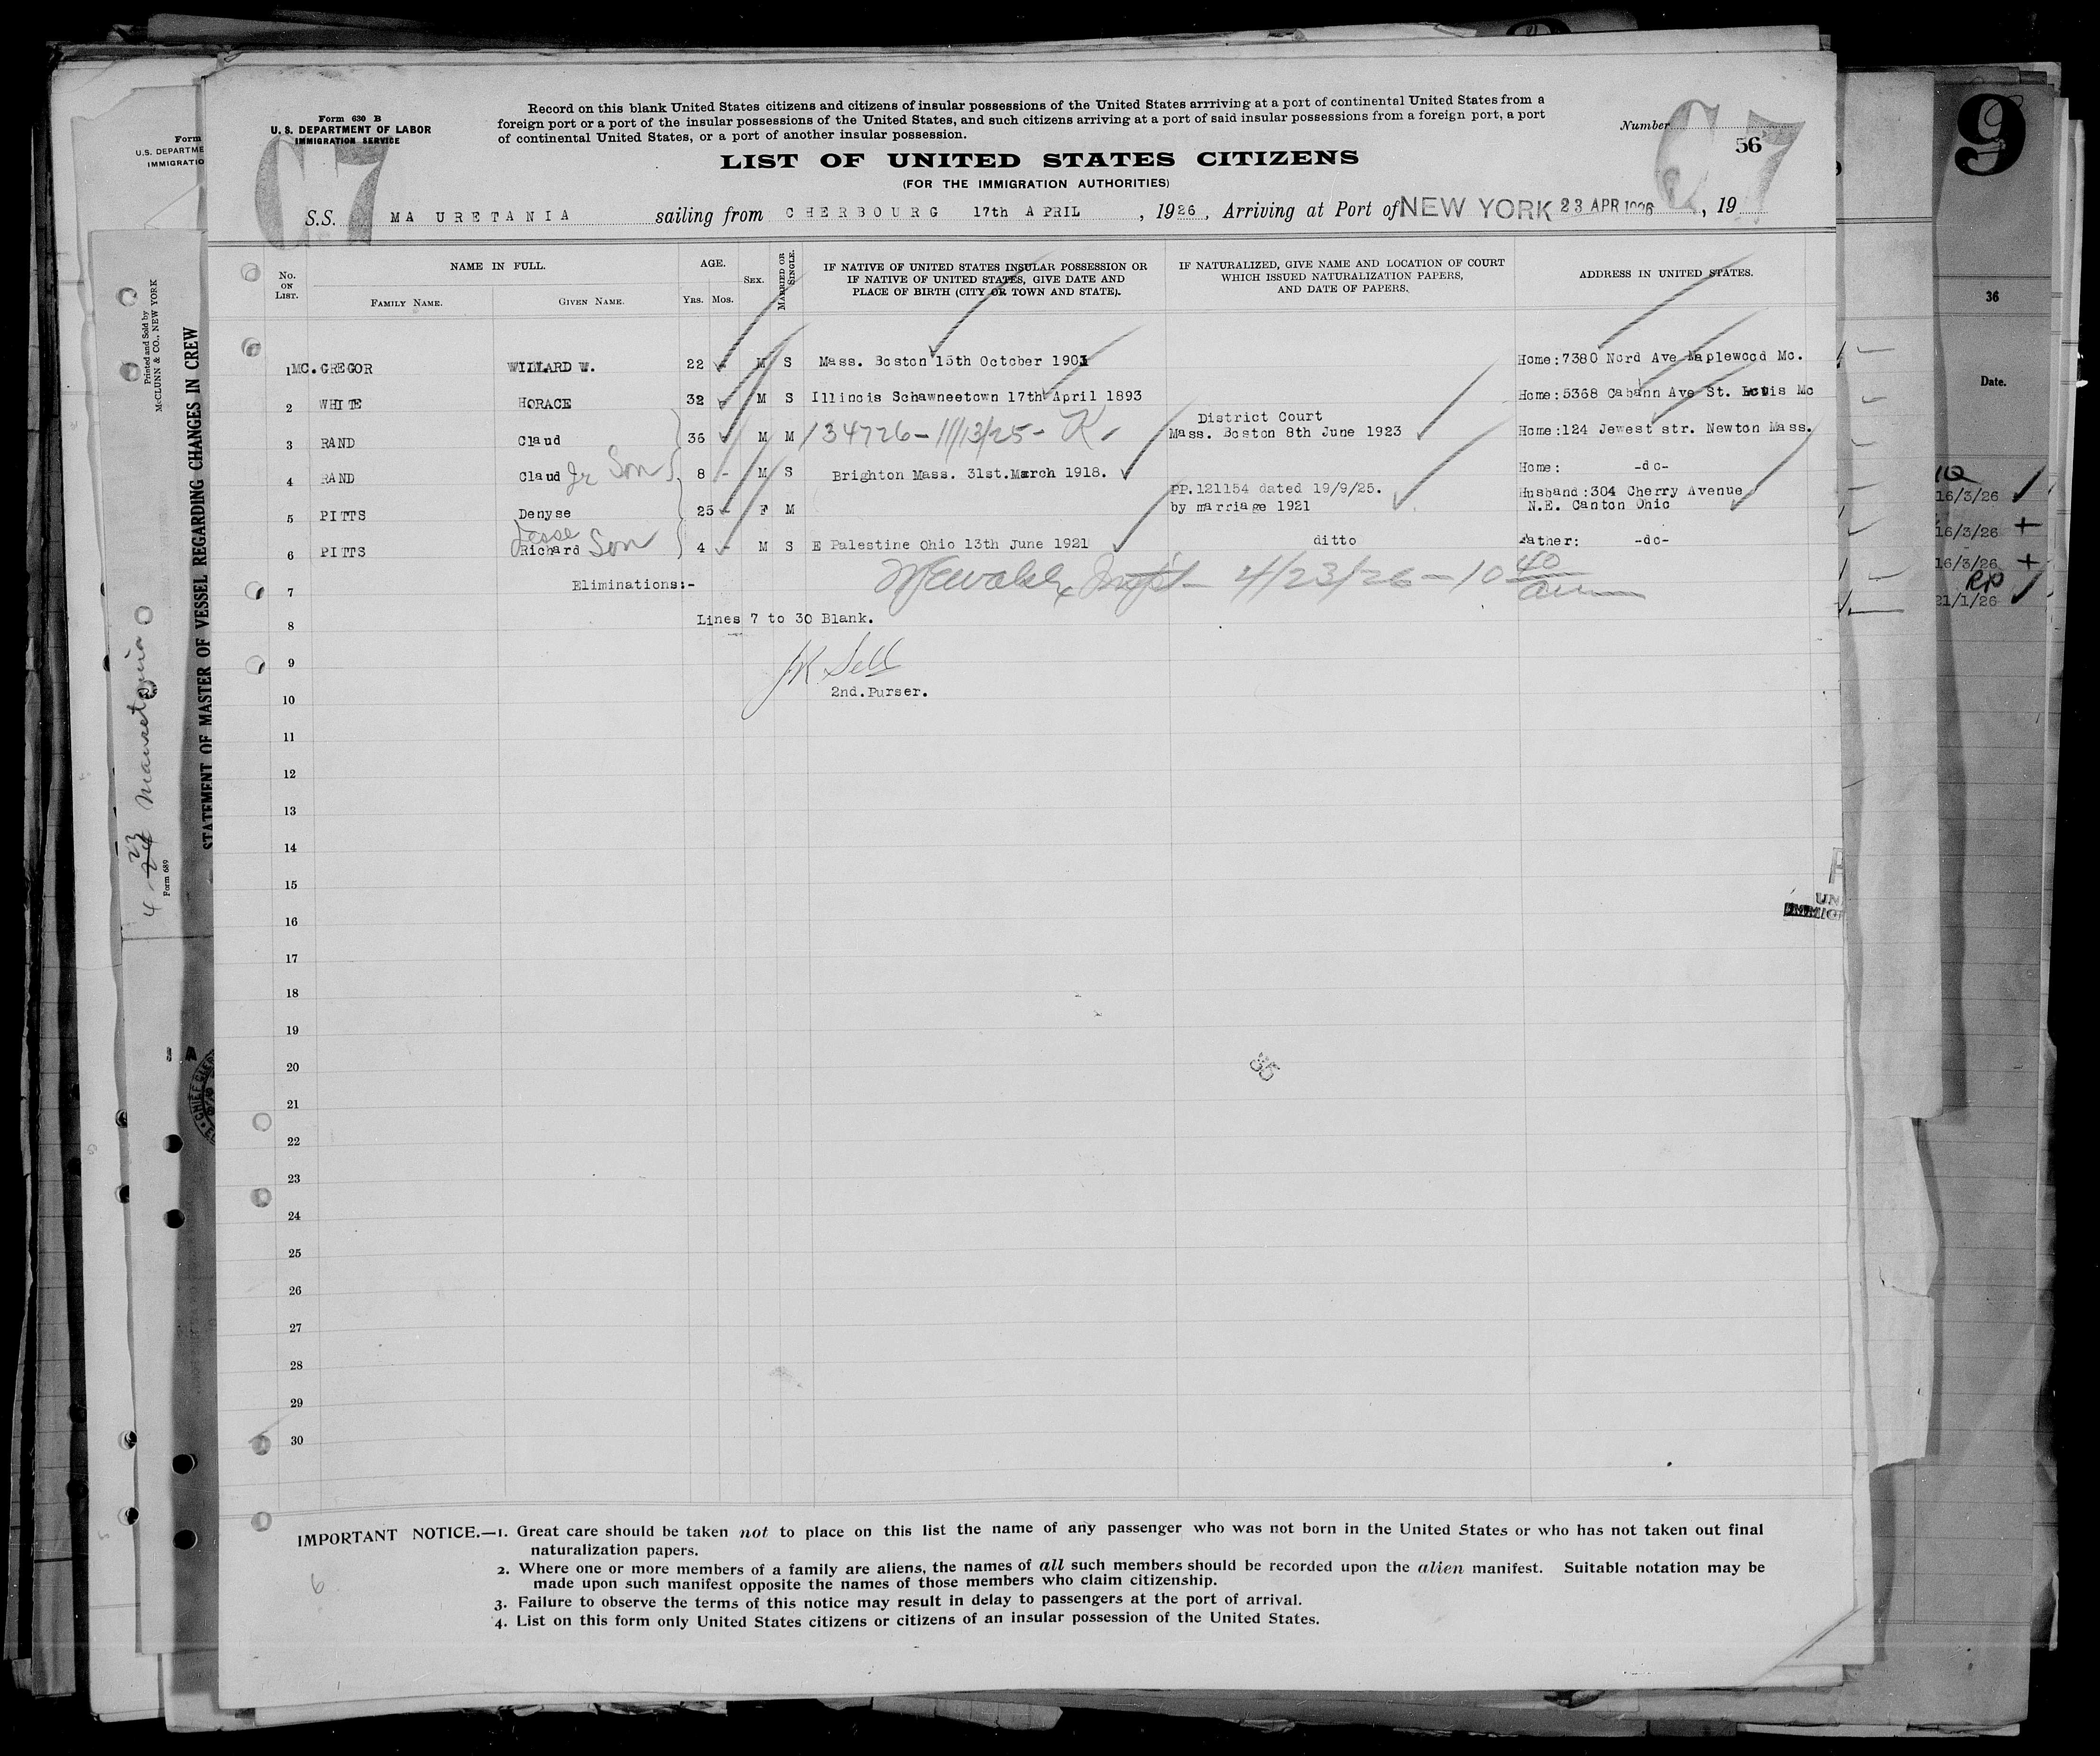 Form 630 B
U. S. DEPARTMENT OF LABOR
IMMIGRATION SERVICE
Record on this blank United States citizens and citizens of insular possessions of the United States arrriving at a port of continental United States from a
foreign port or a port of the insular possessions of the United States, and such citizens arriving at a port of said insular possessions from a foreign port, a port
of continental United States, or a port of another insular possession.
Number
56
67
67
LIST OF UNITED STATES CITIZENS
(FOR THE IMMIGRATION AUTHORITIES)
S.S. MAURETANIA sailing from CHERBOURG 17th APRIL , 1926, Arriving at Port of NEW YORK 23 APR 1926, 19
No. ON LIST.
NAME IN FULL.
FAMILY NAME. GIVEN NAME.
AGE.
Yrs. Mos.
SEX.
MARRIED OR SINGLE.
IF NATIVE OF UNITED STATES INSULAR POSSESSION OR
IF NATIVE OF UNITED STATES, GIVE DATE AND
PLACE OF BIRTH (CITY OR TOWN AND STATE).
IF NATURALIZED, GIVE NAME AND LOCATION OF COURT
WHICH ISSUED NATURALIZATION PAPERS,
AND DATE OF PAPERS.
ADDRESS IN UNITED STATES.
1 MC.GREGOR WILLARD W. 22 M S Mass. Boston 15th October 1903 Home:7380 Nord Ave Maplewood Mo.
2 WHITE HORACE 32 M S Illinois Schawneetown 17th April 1893 Home:5368 Cabann Ave St. Louis Mo
District Court
3 RAND Claud 36 M M 134726-11/13/25- R Mass. Boston 8th June 1923 Home:124 Jewest str. Newton Mass.
4 RAND Claud Jr Son 8 - M S Brighton Mass. 31st.March 1918. Home: -do-
PP.121154 dated 19/9/25. Husband:304 Cherry Avenue
5 PITTS Denyse 25 - F M by marriage 1921 N.E. Canton Ohio
Jesse
6 PITTS Richard Son 4 - M S E Palestine Ohio 13th June 1921 ditto Father: -do-
7 Eliminations:- 4/23/26 - 10 40 am
8 Lines 7 to 30 Blank.
9
2nd.Purser.
10
11
12
13
14
15
16
17
18
19
20
21
22
23
24
25
26
27
28
29
30
IMPORTANT NOTICE.—1. Great care should be taken not to place on this list the name of any passenger who was not born in the United States or who has not taken out final
naturalization papers.
2. Where one or more members of a family are aliens, the names of all such members should be recorded upon the alien manifest. Suitable notation may be
made upon such manifest opposite the names of those members who claim citizenship.
3. Failure to observe the terms of this notice may result in delay to passengers at the port of arrival.
4. List on this form only United States citizens or citizens of an insular possession of the United States.
6
35
Form
U.S. DEPARTME
IMMIGRATIO
Printed and Sold by
McCLUNN & CO., NEW YORK
STATEMENT OF MASTER OF VESSEL REGARDING CHANGES IN CREW
Mauretania
Form 689
9
36
Date.
16/3/26
16/3/26
16/3/26
21/1/26
UN
IMMIGR